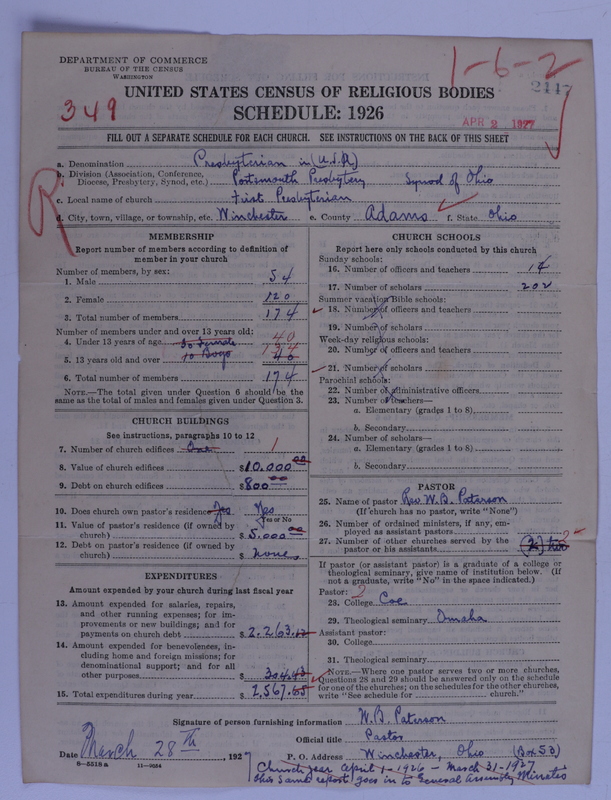 DEPARTMENT OF COMMERCE
BUREAU OF THE CENSUS
WASHINGTON
1-6-2
2117
UNITED STATES CENSUS OF RELIGIOUS BODIES
SCHEDULE: 1926
349
APR 2 1927
FILL OUT A SEPARATE SCHEDULE FOR EACH CHURCH. SEE INSTRUCTIONS ON THE BACK OF THIS SHEET
R
a. Denomination Presbyterian in (U.S.A)
b. Division (Association, Conference, Diocese, Presbytery, Synod, etc.) Portsmouth Presbytery Synod of Ohio
c. Local name of church First Presbyterian
d. City, town, village, or township, etc. Winchester e. County Adams f. State Ohio
MEMBERSHIP
Report number of members according to definition of
member in your church
Number of members, by sex:
1. Male 54
2. Female 120
3. Total number of members 174
Number of members under and over 13 years old:
4. Under 13 years of age 30 Female 40
5. 13 years old and over 10 Boys 134 40
6. Total number of members 174
NOTE.—The total given under Question 6 should be
same as the total of males and females given under Question 3.
CHURCH BUILDINGS
See instructions, paragraphs 10 to 12
7. Number of church edifices One 1
8. Value of church edifices $10.000 00
9. Debt on church edifices $800 00
10. Does church own pastor's residence? Yes Yes
Yes or No
11. Value of pastor's residence (if owned by
church) $5.000 00
12. Debt on pastor's residence (if owned by
church) $ none
EXPENDITURES
Amount expended by your church during last fiscal year
13. Amount expended for salaries, repairs,
and other running expenses; for im-
provements or new buildings; and for
payments on church debt $2.263.12
14. Amount expended for benevolences, in-
cluding home and foreign missions; for
denominational support; and for all
other purposes $304.43
15. Total expenditures during year $2,567.55
CHURCH SCHOOLS
Report here only schools conducted by this church
Sunday schools:
16. Number of officers and teachers 14
17. Number of scholars 202
Summer vacation Bible schools:
18. Number of officers and teachers
19. Number of scholars
Week-day religious schools:
20. Number of officers and teachers
21. Number of scholars
Parochial schools:
22. Number of administrative officers
23. Number of teachers—
a. Elementary (grades 1 to 8)
b. Secondary
24. Number of scholars—
a. Elementary (grades 1 to 8)
b. Secondary
PASTOR
25. Name of pastor Rev W. B. Paterson
(If church has no pastor, write "None")
26. Number of ordained ministers, if any, em-
ployed as assistant pastors
27. Number of other churches served by the
pastor or his assistants (2) two 2
If pastor (or assistant pastor) is a graduate of a college or
theological seminary, give name of institution below. (If
not a graduate, write "No" in the space indicated.)
Pastor: 2
28. College Coe
29. Theological seminary Omaha
Assistant pastor:
30. College
31. Theological seminary
NOTE.—Where one pastor serves two or more churches,
Questions 28 and 29 should be answered only on the schedule
for one of the churches; on the schedules for the other churches,
write "See schedule for church."
Signature of person furnishing information W. B. Paterson
Official title Pastor
Date March 28th, 1927 P. O. Address Winchester, Ohio (Box 53)
8-5518a 11-9064
Church year April 1-1926 - March 31-1927
this same report goes in to General Assembly Minutes